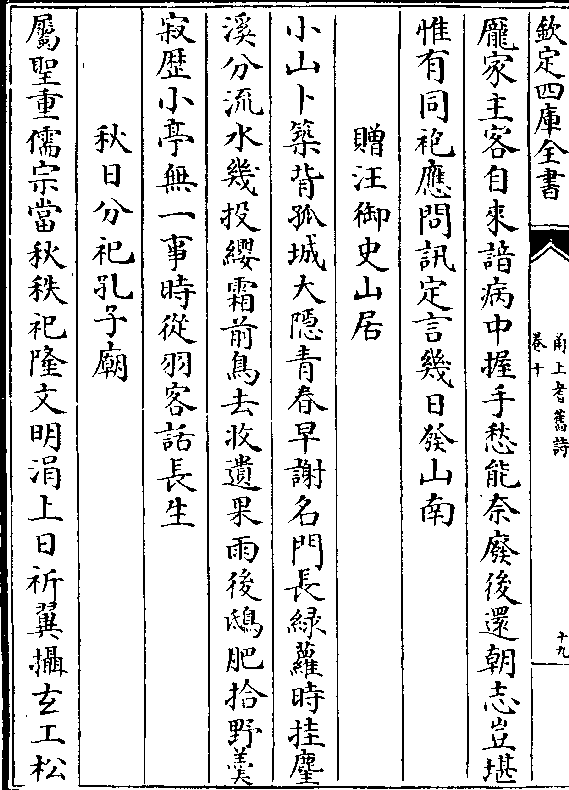 欽定四庫全書
甬上耆舊詩
卷十
十九
龎家主客自來諳病中握手愁能奈廢後還朝志豈堪
惟有同袍應問訊定言幾日發山南
贈汪御史山居
小山卜築背孤城大隱青春早謝名門長綠蘿時挂麈
溪分流水幾投纓霜前鳥去收遺果雨後鴟肥拾野羮
寂歴小亭無一事時從羽客話長生
秋日分祀孔子廟
屬聖重儒宗當秋秩祀隆文明涓上日祈翼攝玄工松